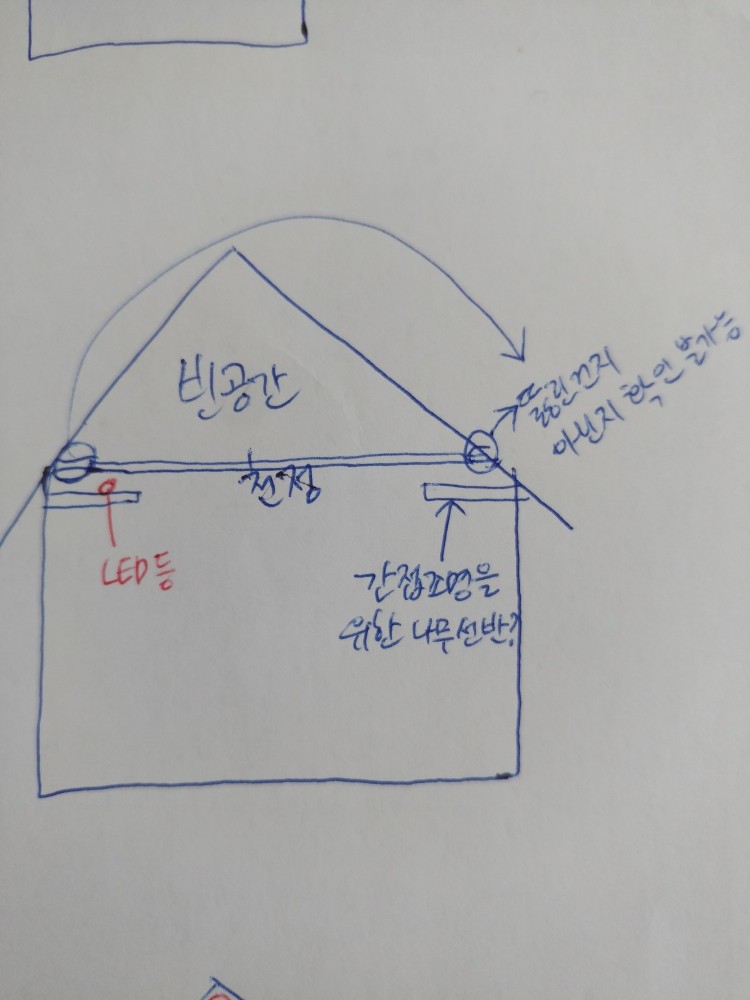 빈공간
뚫린건지
아닌지 확인 불가능
천정
LED등
간접조명을
위한 나무선반?